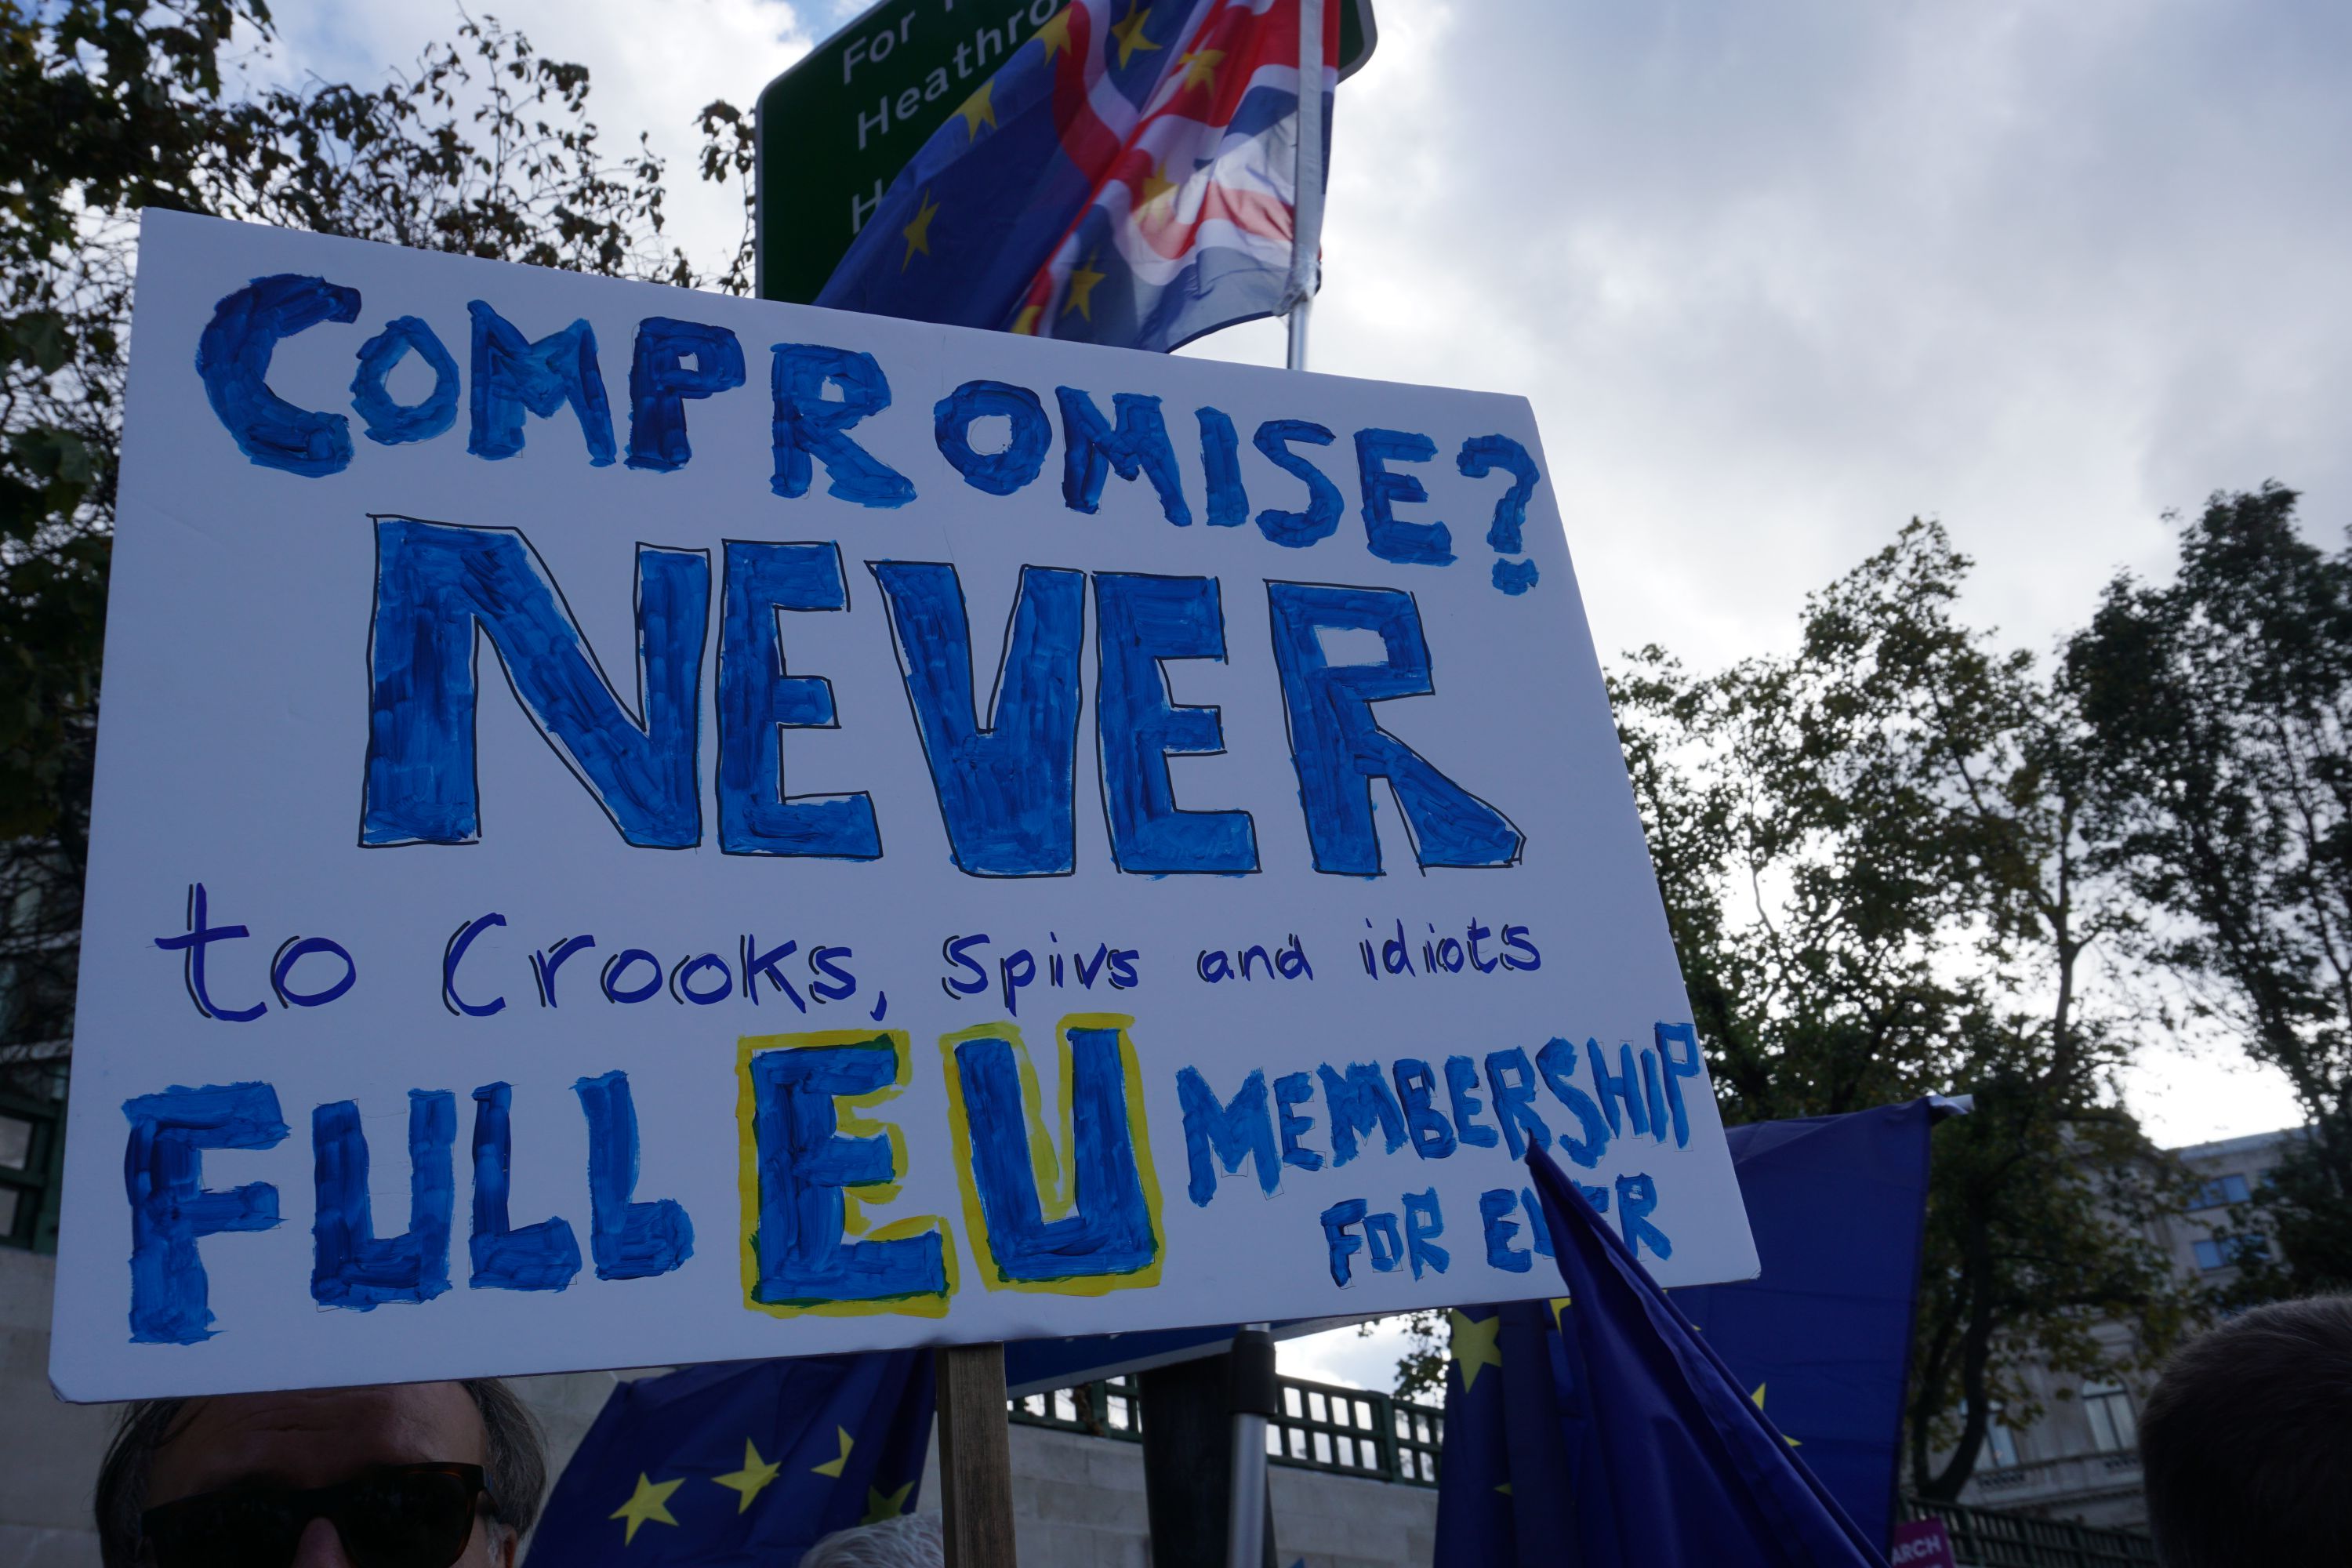 For
Heathro
COMPROMISE?
NEVER
to Crooks, Spivs and idiots
FULL EU MEMBERSHIP
FOR EVER
ARCH